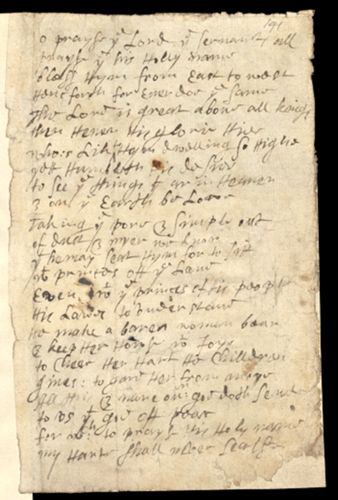 191
o prayse ye Lord ye servants all
prayse ye his Holly name
bless Hym from East to west
Hencforth for Ever doe ye same
The Lord is great above all kings
Then Heven His Glorie Hier
who is Like Hym dwelling so Highe
yett Humbleth
to see ye things yt ar in Heaven
& on ye Earth be Lowe
Taking ye pore & Simple out
of Dust & myer we know
yt he may seat Hym for to sitt
wt princes off ye Land
Even wt ye princes of his people
His Lawes to understand
He make a baren woman bear
& keep Her House wt Joye
to cheer Her Hart He Children
gives: to
All this & more our god doth send
to us yt give off
for us: to prayse His Holy name
my Harte shall never